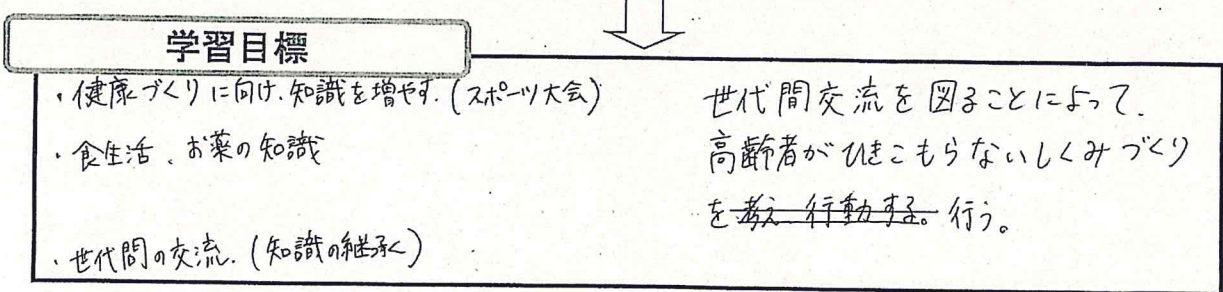 学習目標
・健康づくりに向け、知識を増やす.(スポーツ大会)
・食生活、お薬の知識
・世代間の交流.(知識の継承く)
世代間交流を図ることによって.
高齢者がひきこもらないしくみづくり
を考え 行動する。行う。